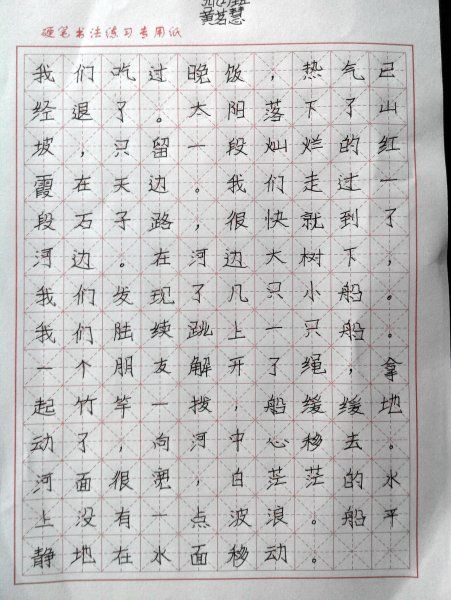 黄茗慧
硬笔书法练习专用纸
我们吃过晚饭，热气已
经退了。太阳落下了山
坡，只留一段灿烂的红
霞在天边。我们走过一
段石子路，很快就到了
河边。在河边大树下，
我们发现了几只小船。
我们陆续跳上一只船。
一个朋友解开了绳，拿
起竹竿一拨，船缓缓地
动了，向河中心移去。
河面很宽，白茫茫的水
上没有一点波浪。船平
静地在水面移动。